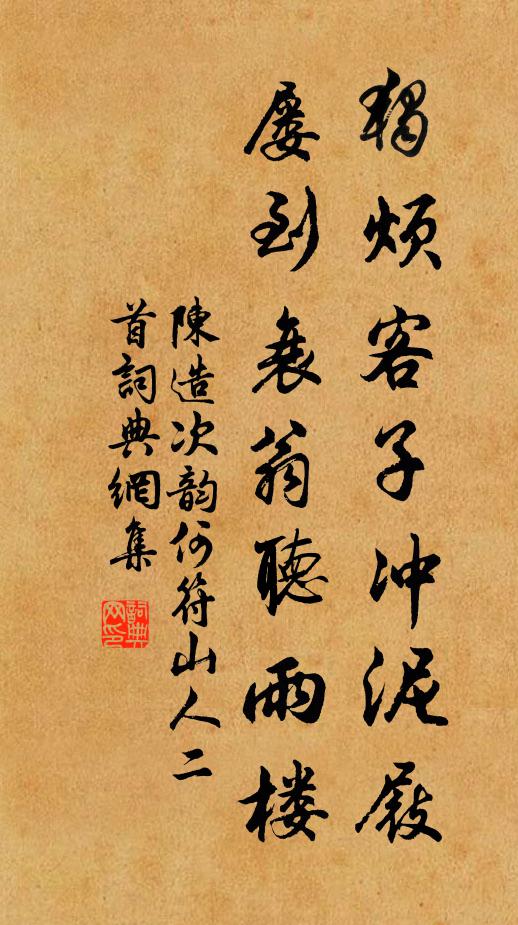 獨煩客子沖泥屐
屢到衰翁聽雨樓
陳造次韵何符山人二
首詞典網集
詞典網印